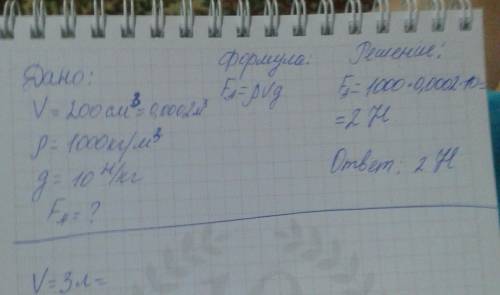 Дано:
V = 200 см³ = 0,0002 м³
ρ = 1000 кг/м³
g = 10 Н/кг
Fл = ?
Формула:
Fл = ρVg
Решение:
Fл = 1000 · 0,0002 · 10 =
= 2 Н
Ответ. 2 Н
V = 3 л =